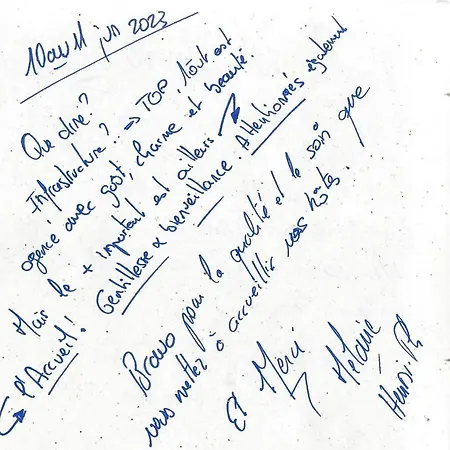 10 au 11 juin 2023
Que dire?
Infrastructure? => TOP, tout est
agencé avec goût, charme et beauté.
Mais le + important est ailleurs
→ l'Accueil!
Gentillesse & bienveillance. Attentionnés également
Bravo pour la qualité et le soin que
vous mettez à accueillir vos hôtes.
Et Merci
Mélanie
Henri R